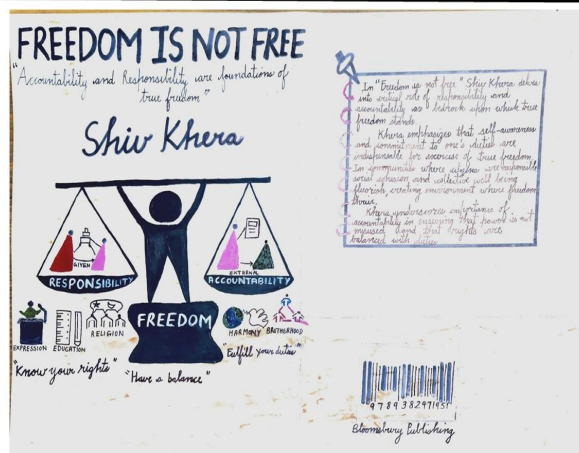 FREEDOM IS NOT FREE
"Accountability and Responsibility are foundations of
true freedom"
Shiv Khera
GIVEN
RESPONSIBILITY
EXTERNAL
ACCOUNTABILITY
FREEDOM
EXPRESSION
EDUCATION
RELIGION
HARMONY
BROTHERHOOD
"Know your rights"
"Have a balance"
Fulfill your duties"
In "Freedom is not free" Shiv Khera delves
into critical role of responsibility and
accountability as bedrock upon which true
freedom stands.
Khera emphasizes that self-awareness
and commitment to one's duties are
indispensable for exercise of true freedom.
In communities where citizens are responsible
social cohesion and collective well being
flourish, creating environment where freedom
thrives.
Khera underscores importance of
accountability in ensuring that power is not
misused and that rights are
balanced with duties.
9 789382 971951
Bloomsbury Publishing